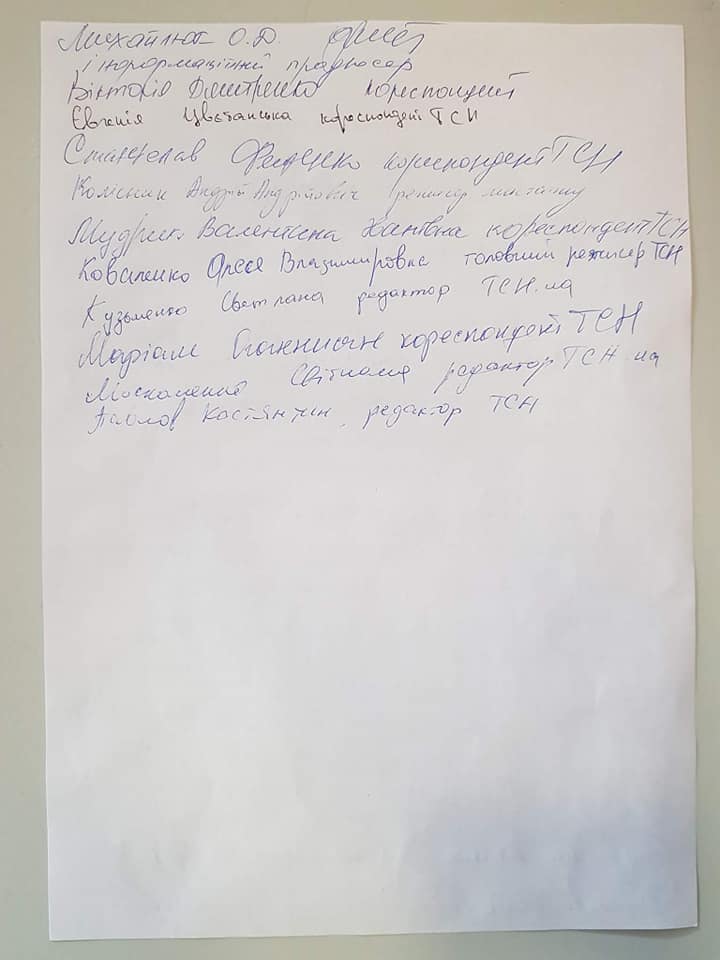 Михайлюк О.Д.
інформаційний продюсер
Вікторія Дмитренко кореспондент
Євгенія Цвєтанська кореспондент ТСН
Станіслав кореспондент ТСН
Колісник Андрій Андрійович режисер монтажу
Мудрик Валентина кореспондент ТСН
Коваленко Олеся Владимировна головний режисер ТСН
Кузьменко Светлана редактор ТСН.иа
Маріам кореспондент ТСН
Світлана редактор ТСН.иа
Павлов Костянтин, редактор ТСН